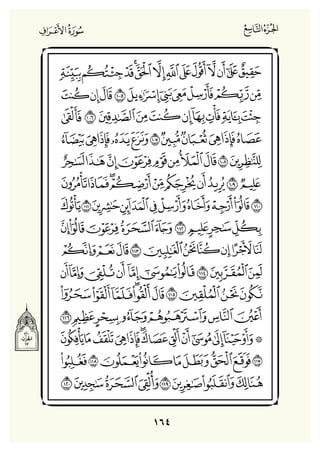 الجُزْءُ التَّاسِعُ
سُورَةُ الأَعْرَافِ
حَقِيقٌ عَلَىٰٓ أَن لَّآ أَقُولَ عَلَى ٱللَّهِ إِلَّا ٱلْحَقَّۚ قَدْ جِئْتُكُم بِبَيِّنَةٍ
مِّن رَّبِّكُمْ فَأَرْسِلْ مَعِيَ بَنِيٓ إِسْرَٰٓءِيلَ ١٠٥ قَالَ إِن كُنتَ
جِئْتَ بِـَٔايَةٍ فَأْتِ بِهَآ إِن كُنتَ مِنَ ٱلصَّٰدِقِينَ ١٠٦ فَأَلْقَىٰ
عَصَاهُ فَإِذَا هِيَ ثُعْبَانٌ مُّبِينٌ ١٠٧ وَنَزَعَ يَدَهُۥ فَإِذَا هِيَ بَيْضَآءُ
لِلنَّٰظِرِينَ ١٠٨ قَالَ ٱلْمَلَأُ مِن قَوْمِ فِرْعَوْنَ إِنَّ هَٰذَا لَسَٰحِرٌ
عَلِيمٌ ١٠٩ يُرِيدُ أَن يُخْرِجَكُم مِّنْ أَرْضِكُمْۖ فَمَاذَا تَأْمُرُونَ
١١٠ قَالُوٓاْ أَرْجِهْ وَأَخَاهُ وَأَرْسِلْ فِي ٱلْمَدَآئِنِ حَٰشِرِينَ ١١١ يَأْتُوكَ
بِكُلِّ سَٰحِرٍ عَلِيمٍ ١١٢ وَجَآءَ ٱلسَّحَرَةُ فِرْعَوْنَ قَالُوٓاْ إِنَّ
لَنَا لَأَجْرًا إِن كُنَّا نَحْنُ ٱلْغَٰلِبِينَ ١١٣ قَالَ نَعَمْ وَإِنَّكُمْ
لَمِنَ ٱلْمُقَرَّبِينَ ١١٤ قَالُواْ يَٰمُوسَىٰٓ إِمَّآ أَن تُلْقِيَ وَإِمَّآ أَن
نَّكُونَ نَحْنُ ٱلْمُلْقِينَ ١١٥ قَالَ أَلْقُواْۖ فَلَمَّآ أَلْقَوْاْ سَحَرُوٓاْ
أَعْيُنَ ٱلنَّاسِ وَٱسْتَرْهَبُوهُمْ وَجَآءُو بِسِحْرٍ عَظِيمٍ ١١٦
۞ وَأَوْحَيْنَآ إِلَىٰ مُوسَىٰٓ أَنْ أَلْقِ عَصَاكَۖ فَإِذَا هِيَ تَلْقَفُ مَا يَأْفِكُونَ
١١٧ فَوَقَعَ ٱلْحَقُّ وَبَطَلَ مَا كَانُواْ يَعْمَلُونَ ١١٨ فَغُلِبُواْ
هُنَالِكَ وَٱنقَلَبُواْ صَٰغِرِينَ ١١٩ وَأُلْقِيَ ٱلسَّحَرَةُ سَٰجِدِينَ ١٢٠
١٦٤